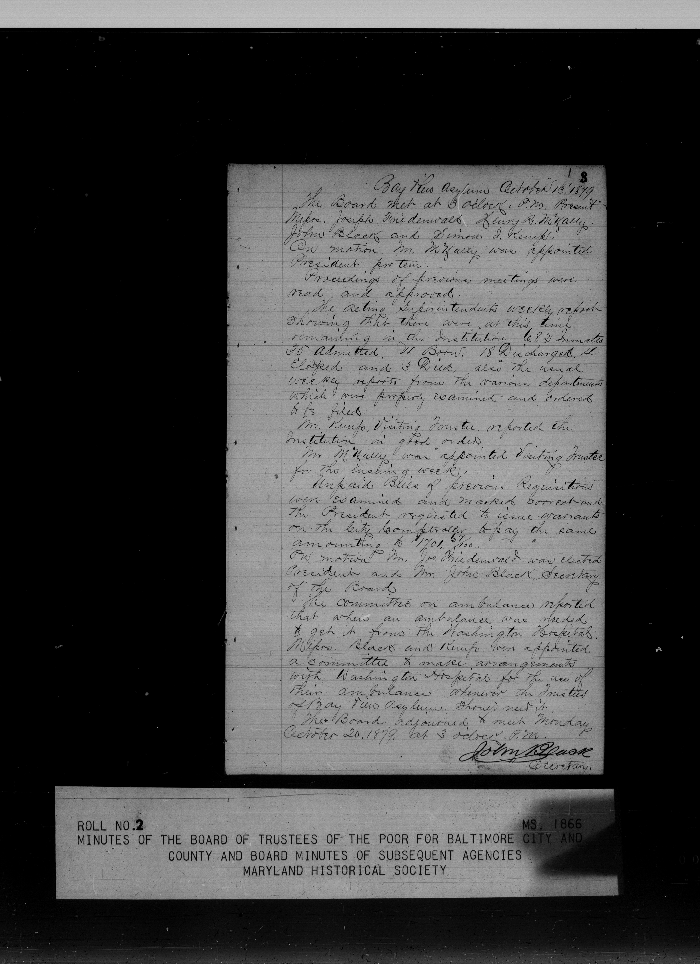 3
Bay View Asylum October 13, 1879
The Board met at 3 oclock P.M. Present
Messrs. Joseph Friedenwald Henry G. McNally
John Black and Simon J. Kemp.
On motion Mr. McNally was appointed
President protem.
Proceedings of previous meetings were
read and approved.
The acting Superintendents weekly report
showing that there were at this time
remaining in the Institution inmates
Admitted, Born, 18 Discharged,
Eloped and 3 Died. also the usual
weekly reports from the various departments
which was properly examined and ordered
to be filed.
Mr. Kemp, Visiting Trustee reported the
Institution in good order.
Mr McNally was appointed Visiting Trustee
for the ensuing week.
Unpaid Bills of previous Requisitions
were examined and marked correct and
the President requested to issue warrants
on the City Comptroller to pay the same
amounting to
On motion Mr. Jos Friedenwald was elected
President and Mr. John Black, Secretary
of the Board
The Committee on ambulance reported
that when an ambulance was needed
to get it from the Washington Hospital,
Messrs. Black and Kemp were appointed
a committee to make arrangements
with Washington Hospital for the use of
their ambulance whenever the Trustees
of Bay View Asylum should need it.
The Board adjourned to meet Monday
October 20, 1879 at 3 oclock P.M.
John Black
Secretary
ROLL NO. 2
MS. 1866
MINUTES OF THE BOARD OF TRUSTEES OF THE POOR FOR BALTIMORE CITY AND
COUNTY AND BOARD MINUTES OF SUBSEQUENT AGENCIES
MARYLAND HISTORICAL SOCIETY